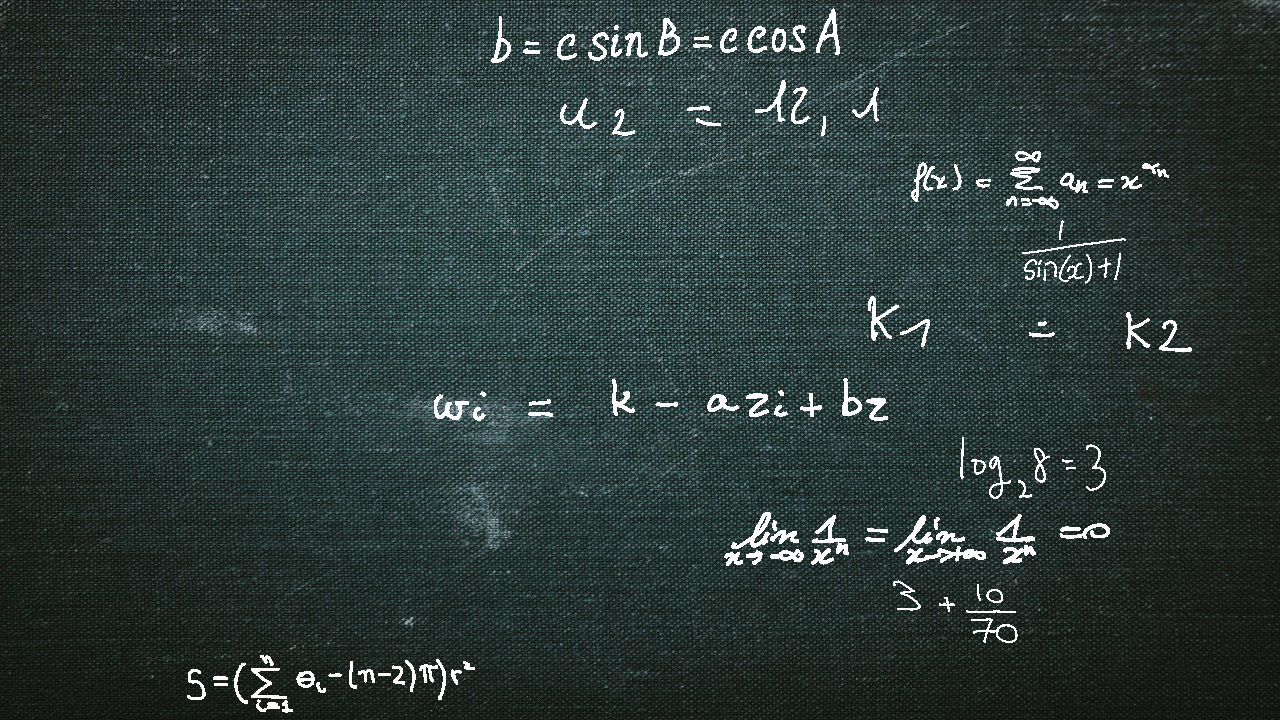 b = c sin B = c cos A
u₂ = 12,1
f(x) = ∑_{n=-∞}^{∞} aₙ = x^{αₙ}
1/(sin(x)+1)
k1 = k2
wi = k - azi + bz
log₂8 = 3
lim_{x→-∞} 1/xⁿ = lim_{x→+∞} 1/xⁿ = 0
3 + 10/70
S = (∑_{i=1}^{n} θᵢ - (n-2)π)r²